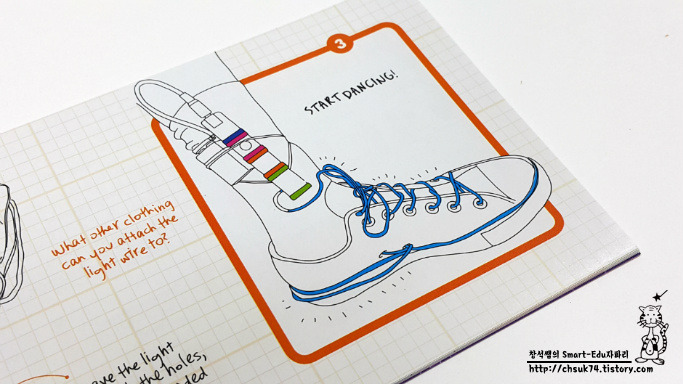 3
START DANCING!
What other clothing
can you attach the
light wire to?
the light
the holes,
창식쌤의 Smart-Edu자파리
http://chsuk74.tistory.com